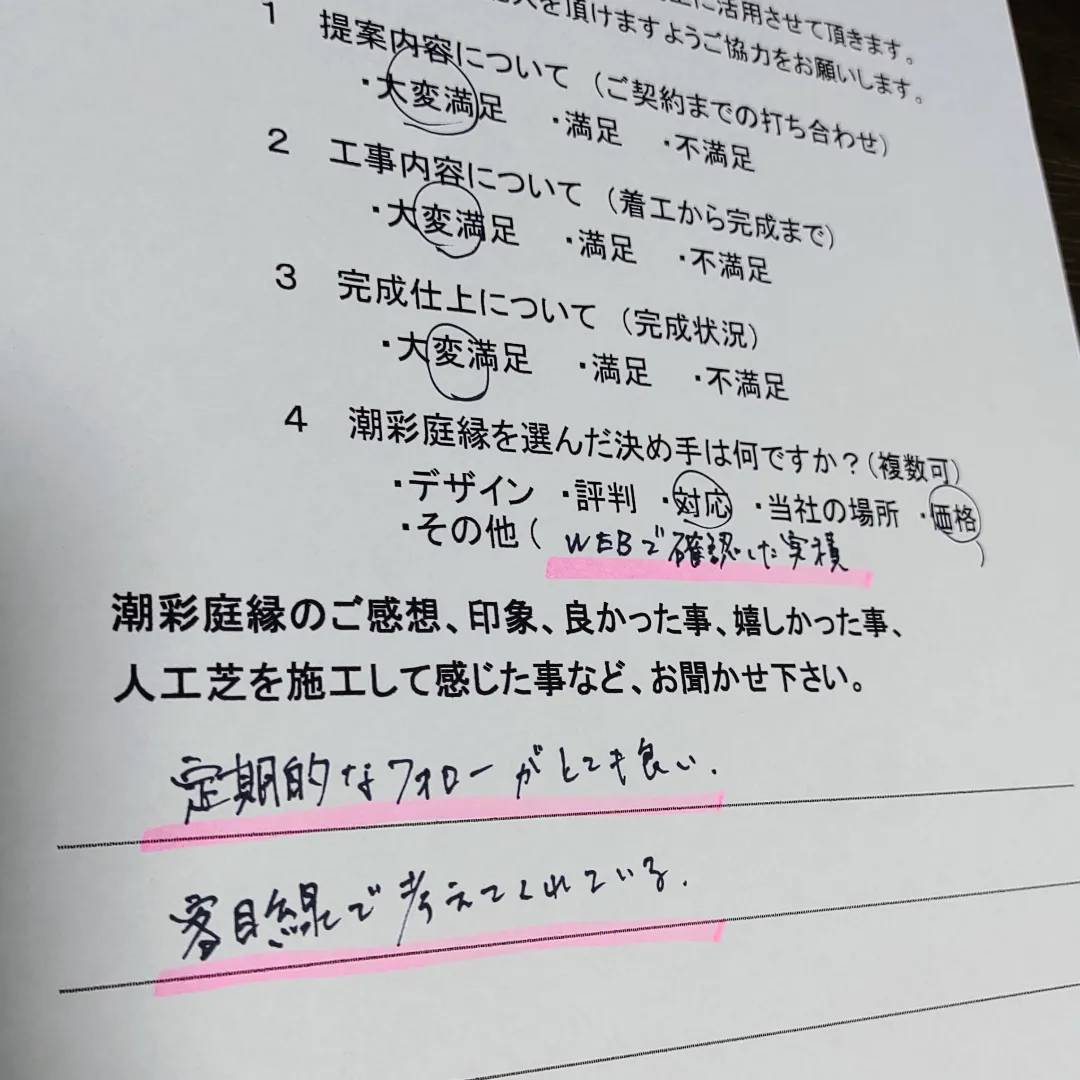 に活用させて頂きます。
を頂けますようご協力をお願いします。
1 提案内容について（ご契約までの打ち合わせ）
・大変満足 ・満足 ・不満足
2 工事内容について（着工から完成まで）
・大変満足 ・満足 ・不満足
3 完成仕上について（完成状況）
・大変満足 ・満足 ・不満足
4 潮彩庭縁を選んだ決め手は何ですか？（複数可）
・デザイン ・評判 ・対応 ・当社の場所 ・価格
・その他（ WEBで確認した実積 ）
潮彩庭縁のご感想、印象、良かった事、嬉しかった事、
人工芝を施工して感じた事など、お聞かせ下さい。
定期的なフォローがとても良い.
客目線で考えてくれている.